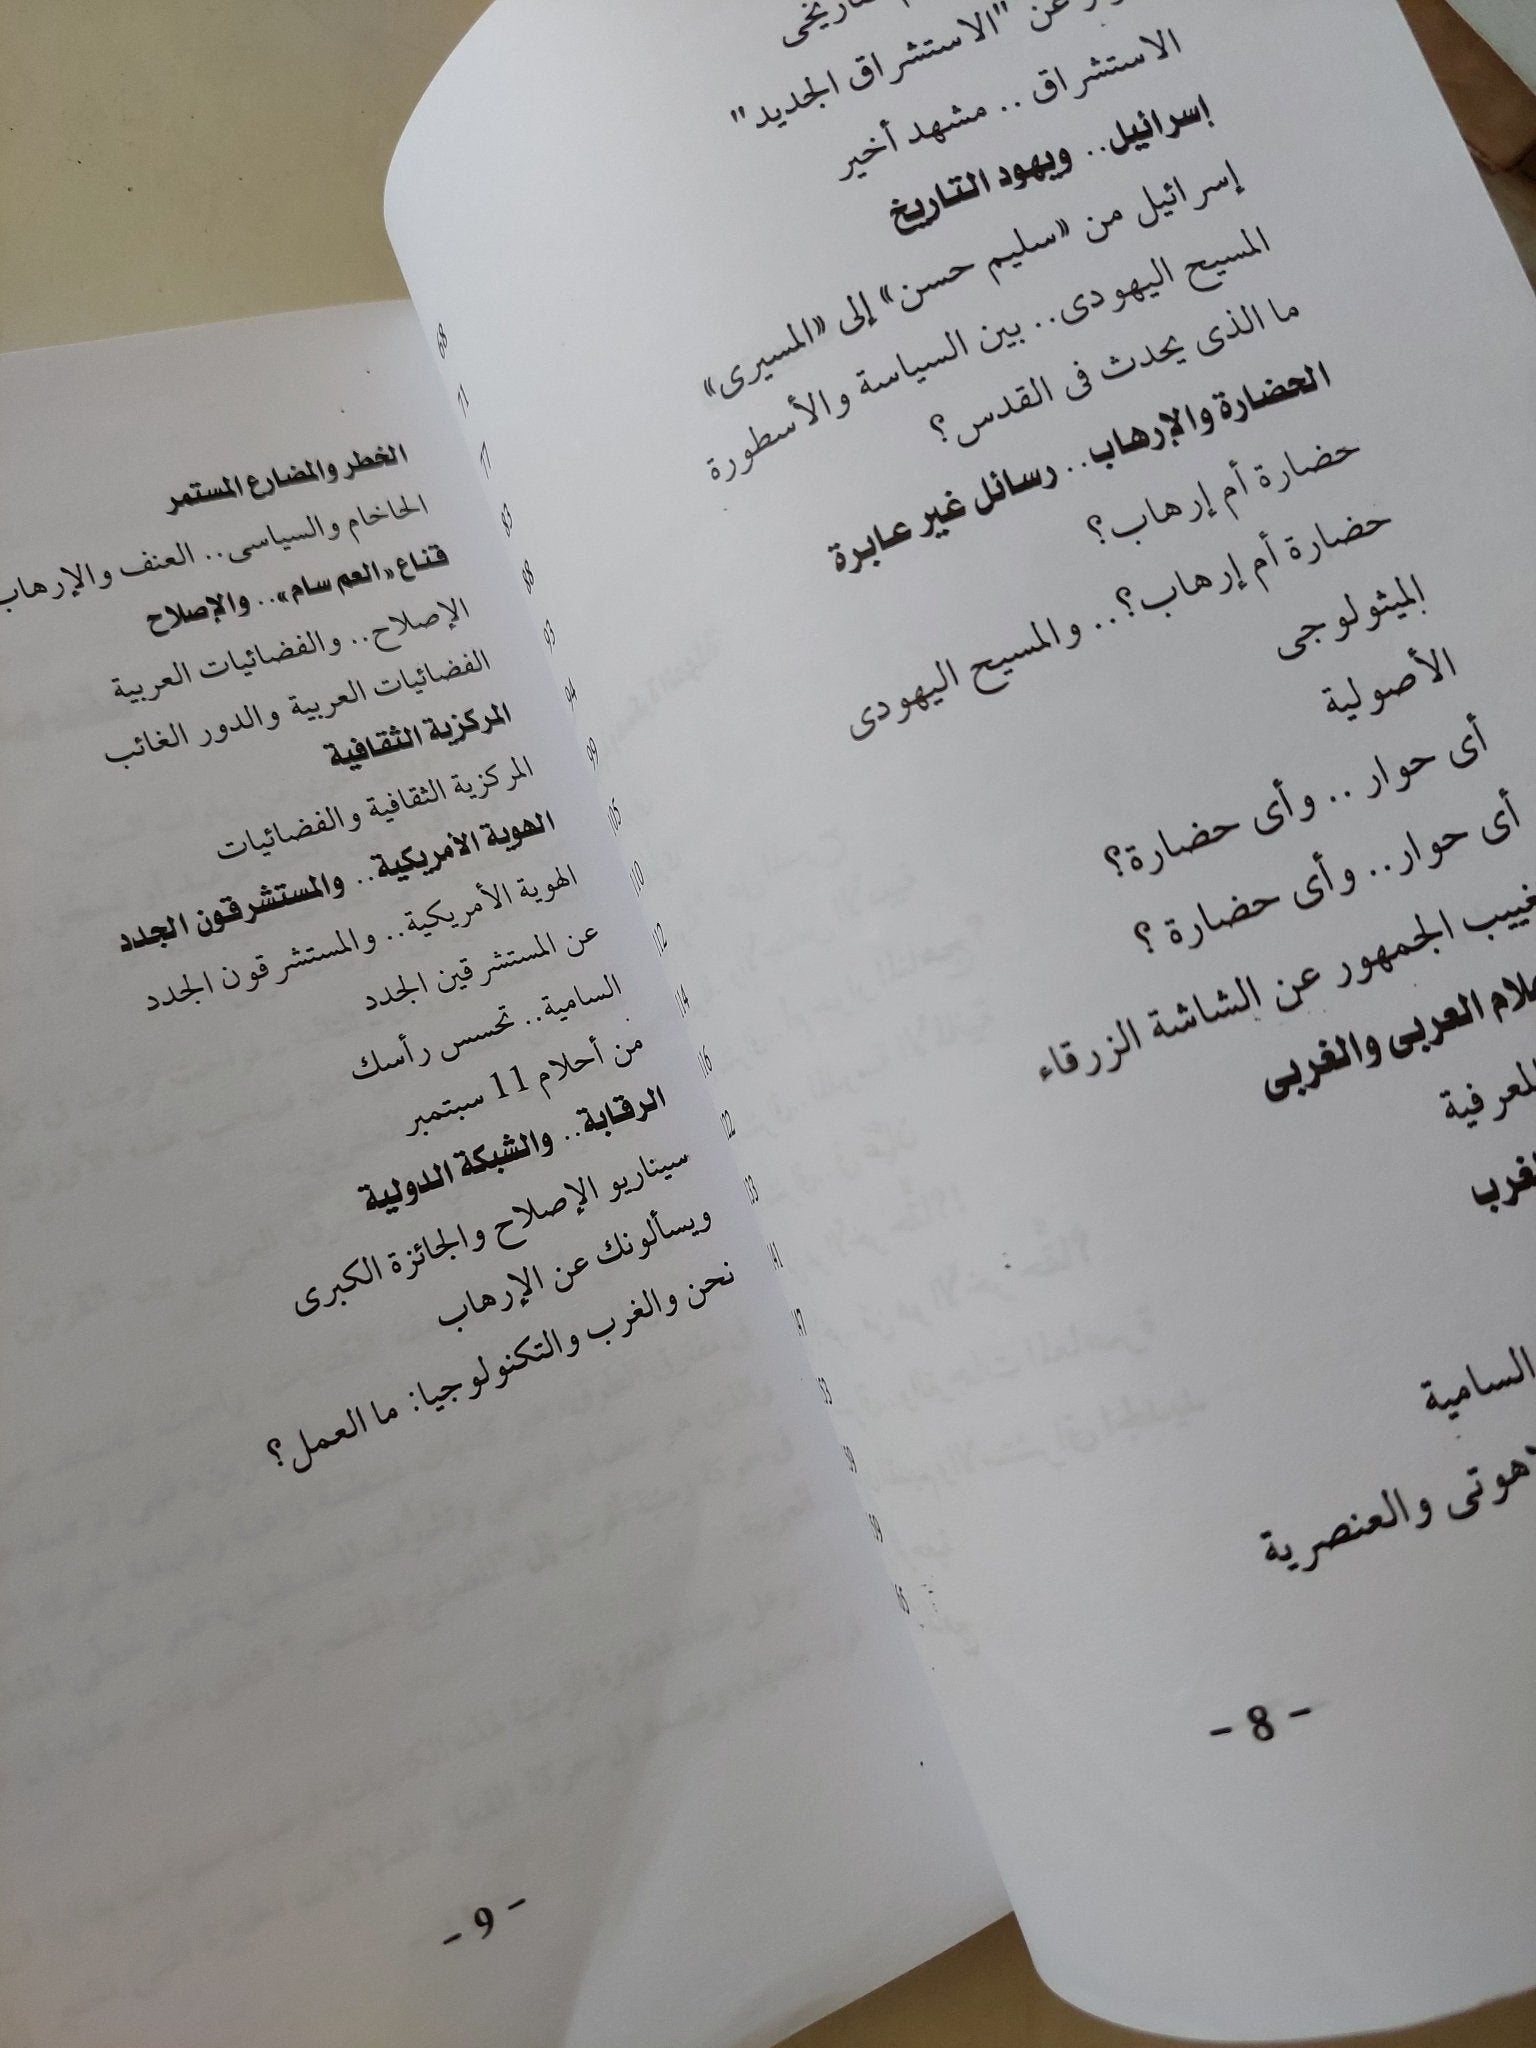 عن "الاستشراق الجديد"
الاستشراق .. مشهد أخير
إسرائيل.. ويهود التاريخ
إسرائيل من «سليم حسن» إلى «المسيرى»
المسيح اليهودى.. بين السياسة والأسطورة
ما الذى يحدث فى القدس؟
الحضارة والإرهاب.. رسائل غير عابرة
حضارة أم إرهاب؟
حضارة أم إرهاب؟.. والمسيح اليهودى
الميثولوجى
الأصولية
أى حوار .. وأى حضارة؟
أى حوار.. وأى حضارة ؟
الجمهور عن الشاشة الزرقاء
العربى والغربى
السامية
والعنصرية
- 8 -
68
71
77
83
88
93
94
99
105
110
112
114
116
122
133
141
147
الخطر والمضارع المستمر
الحاخام والسياسى.. العنف والإرهاب
قناع «العم سام».. والإصلاح
الإصلاح.. والفضائيات العربية
الفضائيات العربية والدور الغائب
المركزية الثقافية
المركزية الثقافية والفضائيات
الهوية الأمريكية.. والمستشرقون الجدد
الهوية الأمريكية.. والمستشرقون الجدد
عن المستشرقين الجدد
السامية.. تحسس رأسك
من أحلام 11 سبتمبر
الرقابة.. والشبكة الدولية
سيناريو الإصلاح والجائزة الكبرى
ويسألونك عن الإرهاب
نحن والغرب والتكنولوجيا: ما العمل؟
- 9 -